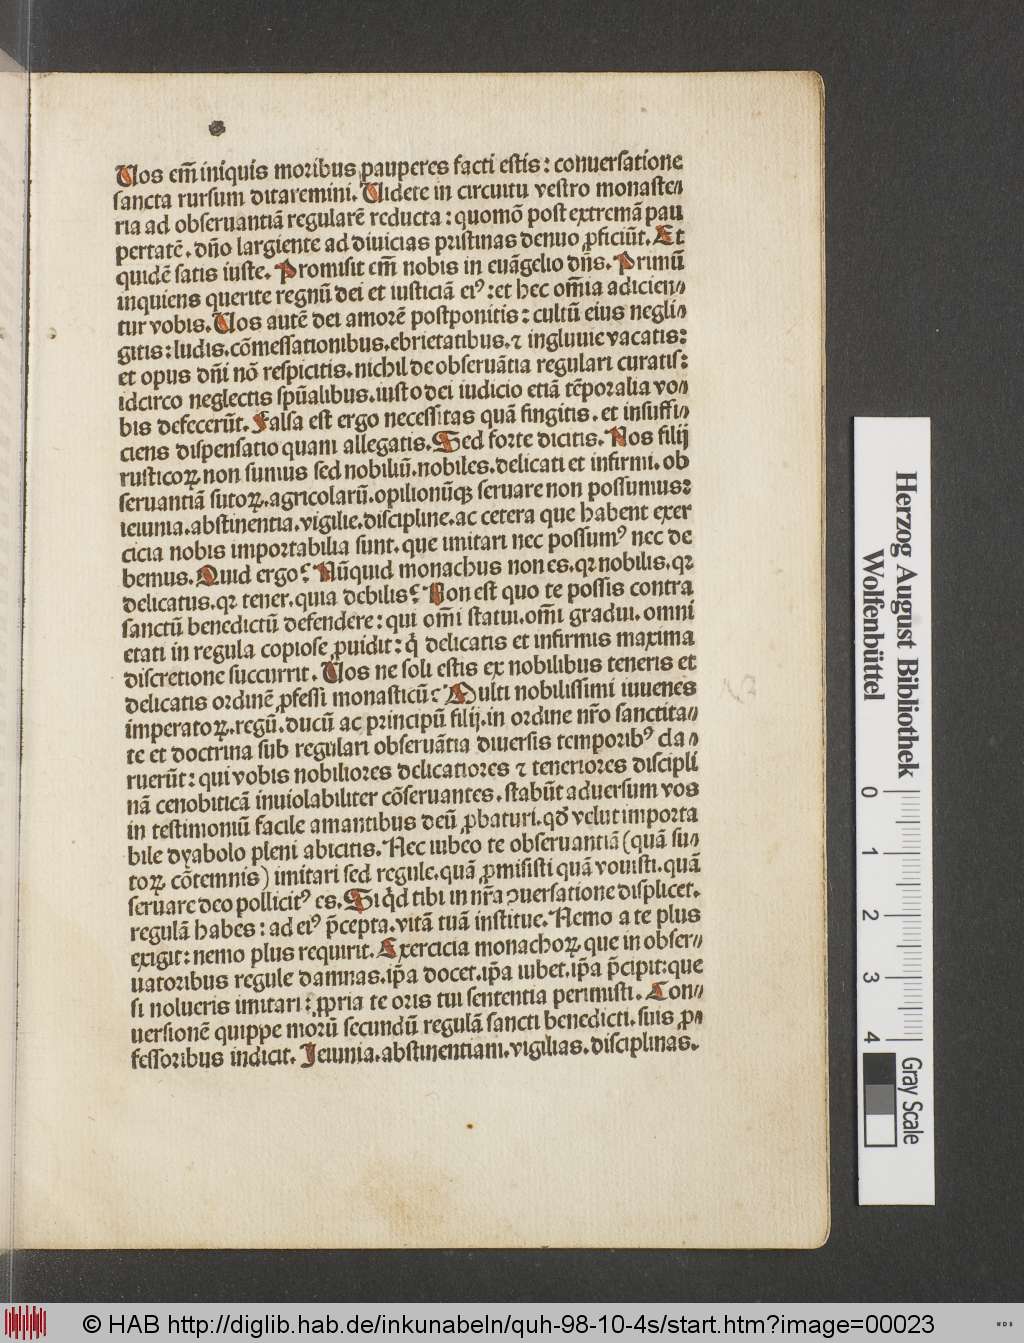 Vos em̃ iniquis moribus pauperes facti estis: conuersatione
sancta rursum ditaremini. Videte in circuitu vestro monaste⸗
ria ad obseruantiā regularē reducta: quomō post extremā pau
pertatē. dño largiente ad diuicias pristinas denuo ꝓficiūt. Et
quidē satis iuste. Promisit em̃ nobis in euāgelio dñs. Primū
inquiens querite regnū dei et iusticiā eiꝰ: et hec om̃ia adicien⸗
tur vobis. Vos autē dei amorē postponitis: cultū eius negli⸗
gitis: ludis. cōmessationibus. ebrietatibus. ⁊ ingluuie vacatis:
et opus dñi nō respicitis. nichil de obseruātia regulari curatis:
idcirco neglectis spūalibus. iusto dei iudicio etiā tēporalia vo⸗
bis defecerūt. Falsa est ergo necessitas quā fingitis. et insuffi⸗
ciens dispensatio quam allegatis. Sed forte dicitis. Nos filij
rusticoꝝ non sumus sed nobiliū. nobiles. delicati et infirmi. ob
seruantiā sutoꝝ. agricolarū. opilionūqꝫ seruare non possumus:
ieiunia. abstinentia. vigilie. discipline. ac cetera que habent exer
cicia nobis importabilia sunt. que imitari nec possumꝰ nec de
bemus. Quid ergo? Nūquid monachus non es. qꝛ nobilis. qꝛ
delicatus. qꝛ tener. quia debilis? Non est quo te possis contra
sanctū benedictū defendere: qui om̃i statui. om̃i gradui. omni
etati in regula copiose ꝓuidit: q̇ delicatis et infirmis maxima
discretione succurrit. Vos ne soli estis ex nobilibus teneris et
delicatis ordinē ꝓfessi monasticū? Multi nobilissimi iuuenes
imperatoꝝ. regū. ducū ac principū filij. in ordine nr̃o sanctita⸗
te et doctrina sub regulari obseruātia diuersis temporibꝰ cla⸗
ruerūt: qui vobis nobiliores delicatiores ⁊ teneriores discipli
nā cenobiticā inuiolabiliter cōseruantes. stabūt aduersum vos
in testimoniū facile amantibus deū ꝓbaturi. qd̄ velut importa
bile dyabolo pleni abicitis. Nec iubeo te obseruantiā (quā su⸗
toꝝ cōtemnis) imitari sed regule. quā ꝓmisisti quā vouisti. quā
seruare deo pollicitꝰ es. Si q̇d tibi in nr̃a ↄuersatione displicet.
regulā habes: ad eiꝰ p̄cepta. vitā tuā institue. Nemo a te plus
exigit: nemo plus requirit. Exercicia monachoꝝ que in obser⸗
uatoribus regule damnas. ip̄a docet. ip̄a iubet. ip̄a p̄cipit: que
si nolueris imitari: ꝓpria te oris tui sententia perimisti. Con⸗
uersionē quippe morū secundū regulā sancti benedicti. suis ꝓ⸗
fessoribus indicit. Ieiunia. abstinentiam. vigilias. disciplinas.
Herzog August Bibliothek
Wolfenbüttel
0 1 2 3 4
Gray Scale
© HAB http://diglib.hab.de/inkunabeln/quh-98-10-4s/start.htm?image=00023